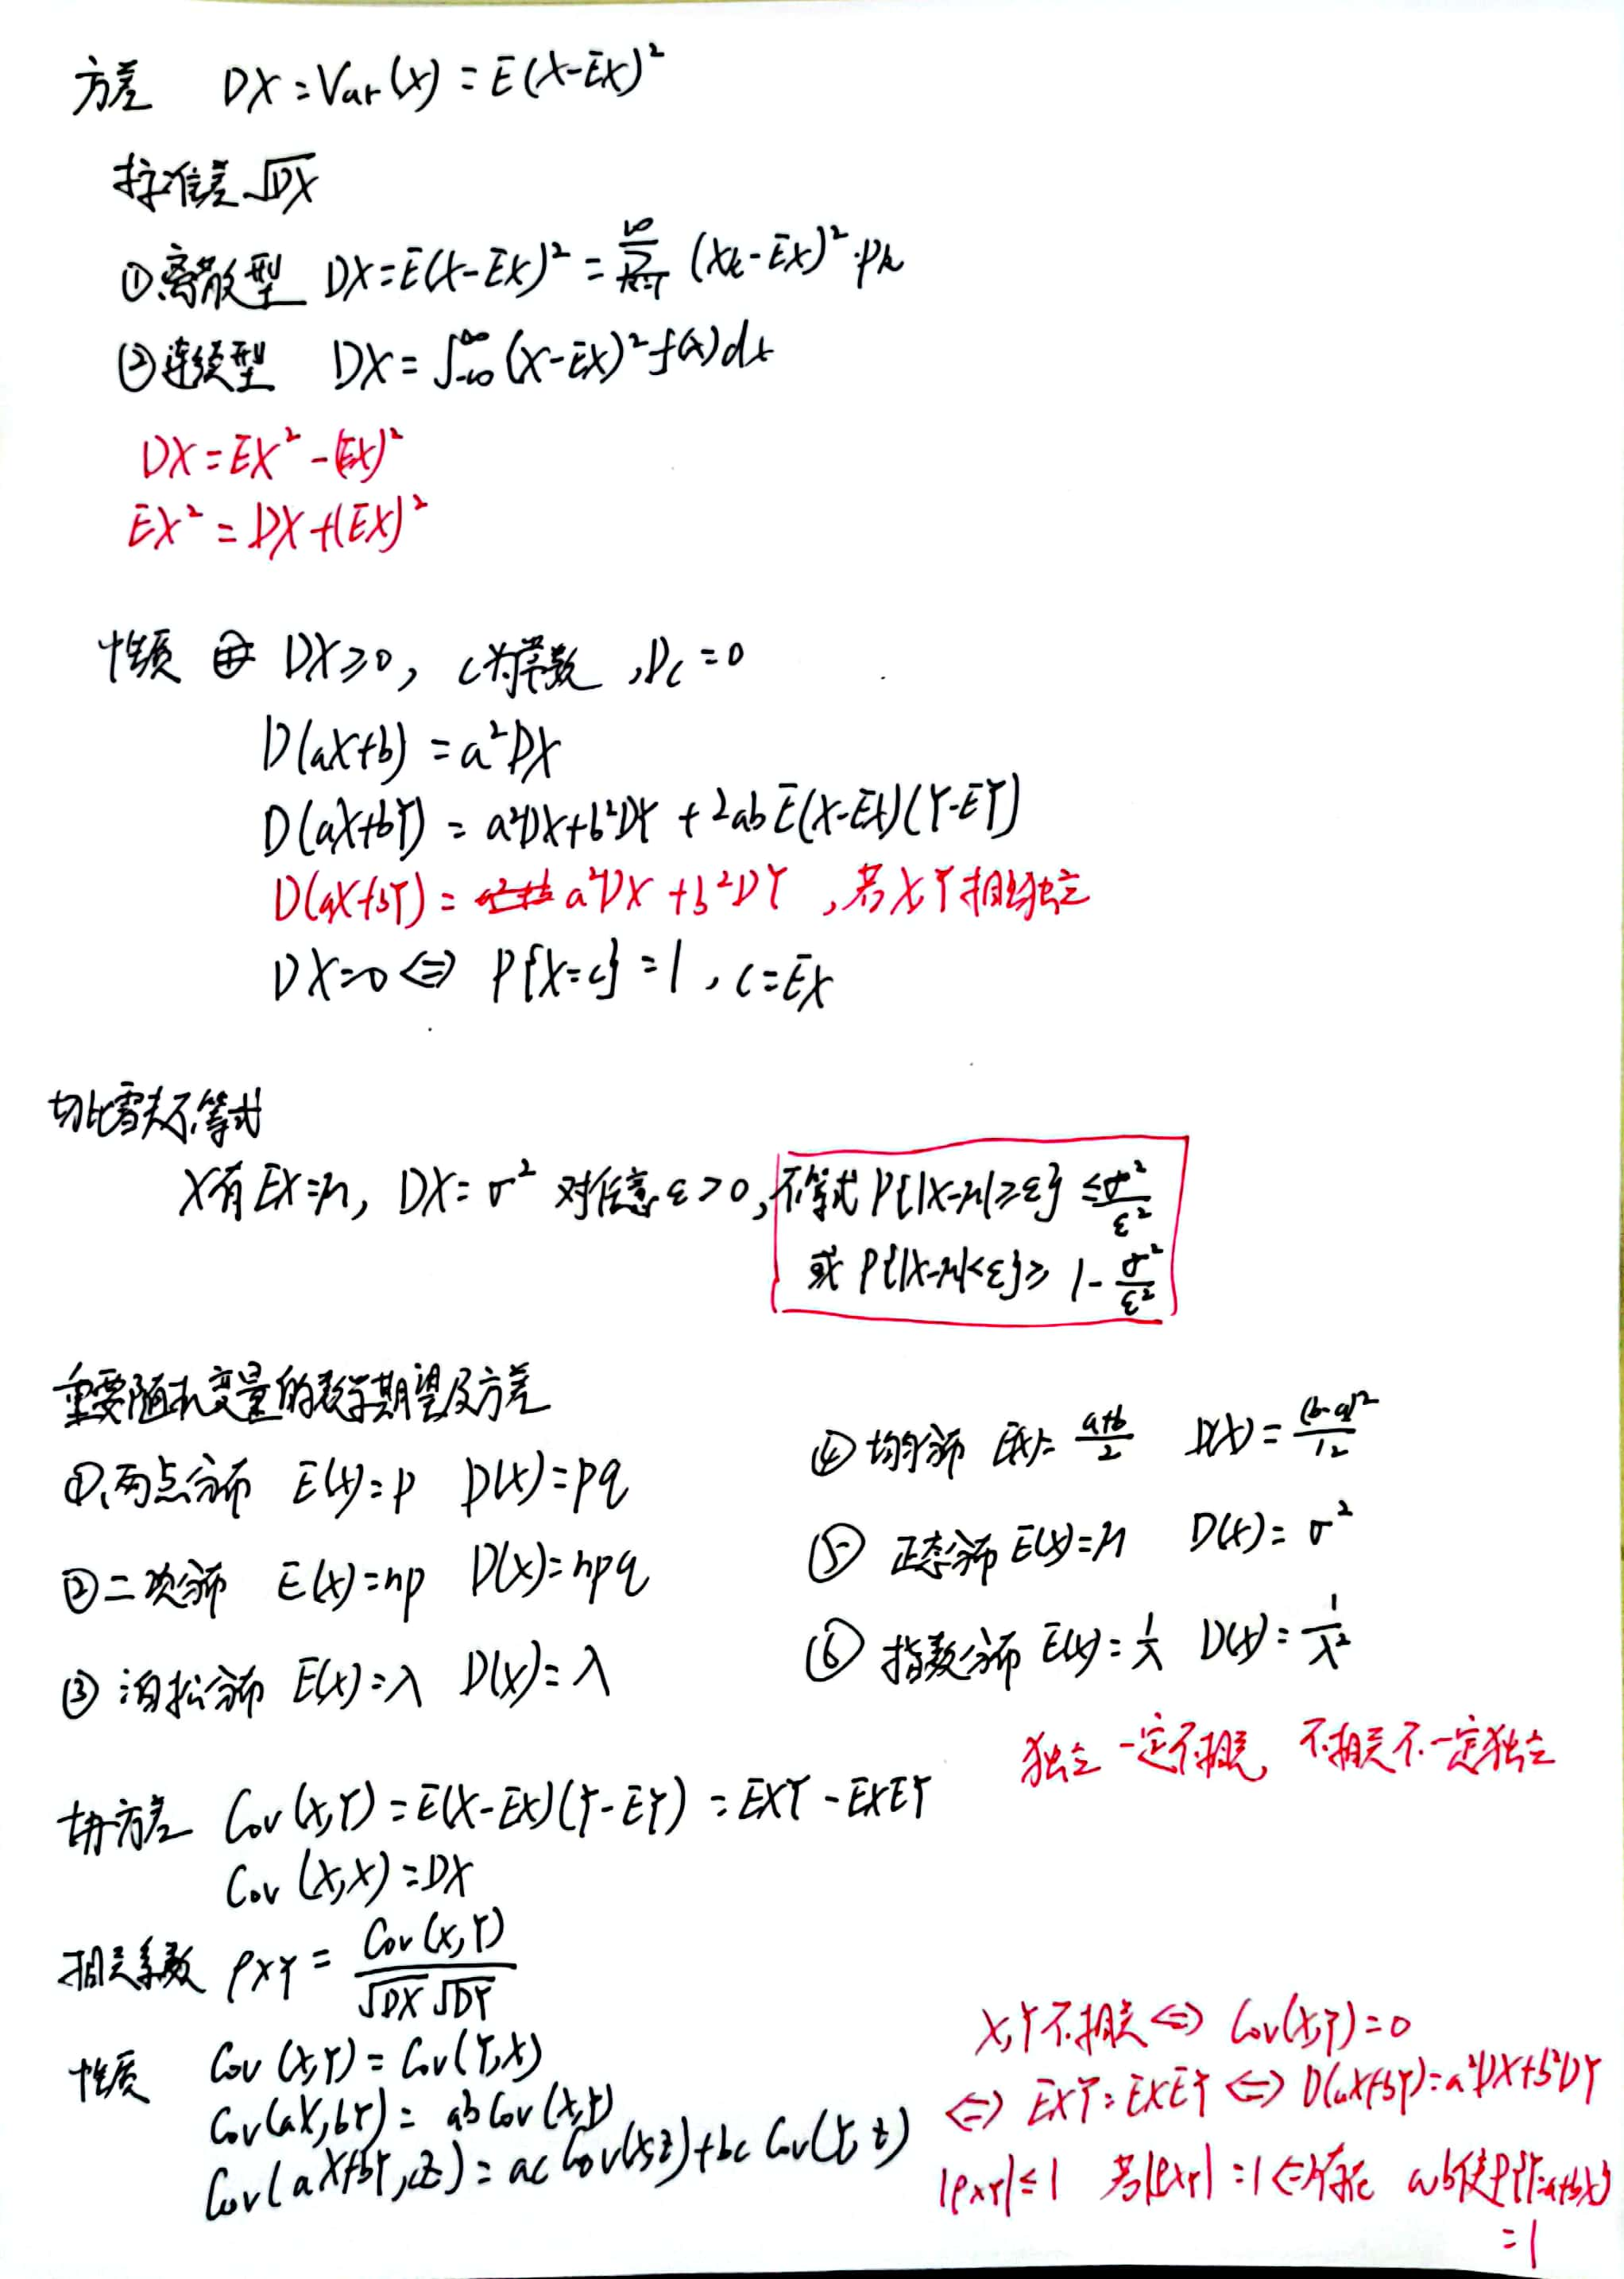 方差 DX=Var(X)=E(X-EX)²
标准差√DX
①离散型 DX=E(X-EX)²=∑_{k=1}^{∞}(Xk-EX)²·Pk
②连续型 DX=∫_{-∞}^{∞}(X-EX)²f(x)dx
DX=EX²-(EX)²
EX²=DX+(EX)²
性质 DX≥0, C为常数,Dc=0
D(aX+b)=a²DX
D(aX+bY)=a²DX+b²DY+2abE(X-EX)(Y-EY)
D(aX+bY)=a²DX+b²DY,若X,Y相互独立
DX=0⇔P{X=c}=1,c=EX
切比雪夫不等式
X有EX=μ, DX=σ² 对任意ε>0,不等式P{|X-μ|≥ε}≤σ²/ε²
或P{|X-μ|<ε}≥1-σ²/ε²
重要随机变量的数学期望及方差
①两点分布 E(X)=p D(X)=pq
②二项分布 E(X)=np D(X)=npq
③泊松分布 E(X)=λ D(X)=λ
④均匀分布 E(X)=(a+b)/2 D(X)=(b-a)²/12
⑤正态分布 E(X)=μ D(X)=σ²
⑥指数分布 E(X)=1/λ D(X)=1/λ²
独立一定不相关, 不相关不一定独立
协方差 Cov(X,Y)=E(X-EX)(Y-EY)=EXY-EXEY
Cov(X,X)=DX
相关系数 ρXY=Cov(X,Y)/√DX√DY
性质 Cov(X,Y)=Cov(Y,X)
Cov(aX,bY)=abCov(X,Y)
Cov(aX+bY,cZ)=acCov(X,Z)+bcCov(Y,Z)
X,Y不相关⇔Cov(X,Y)=0
⇔EXY=EXEY⇔D(aX+bY)=a²DX+b²DY
|ρXY|≤1 若|ρXY|=1⇔存在a,b使P{Y=a+bX}
=1